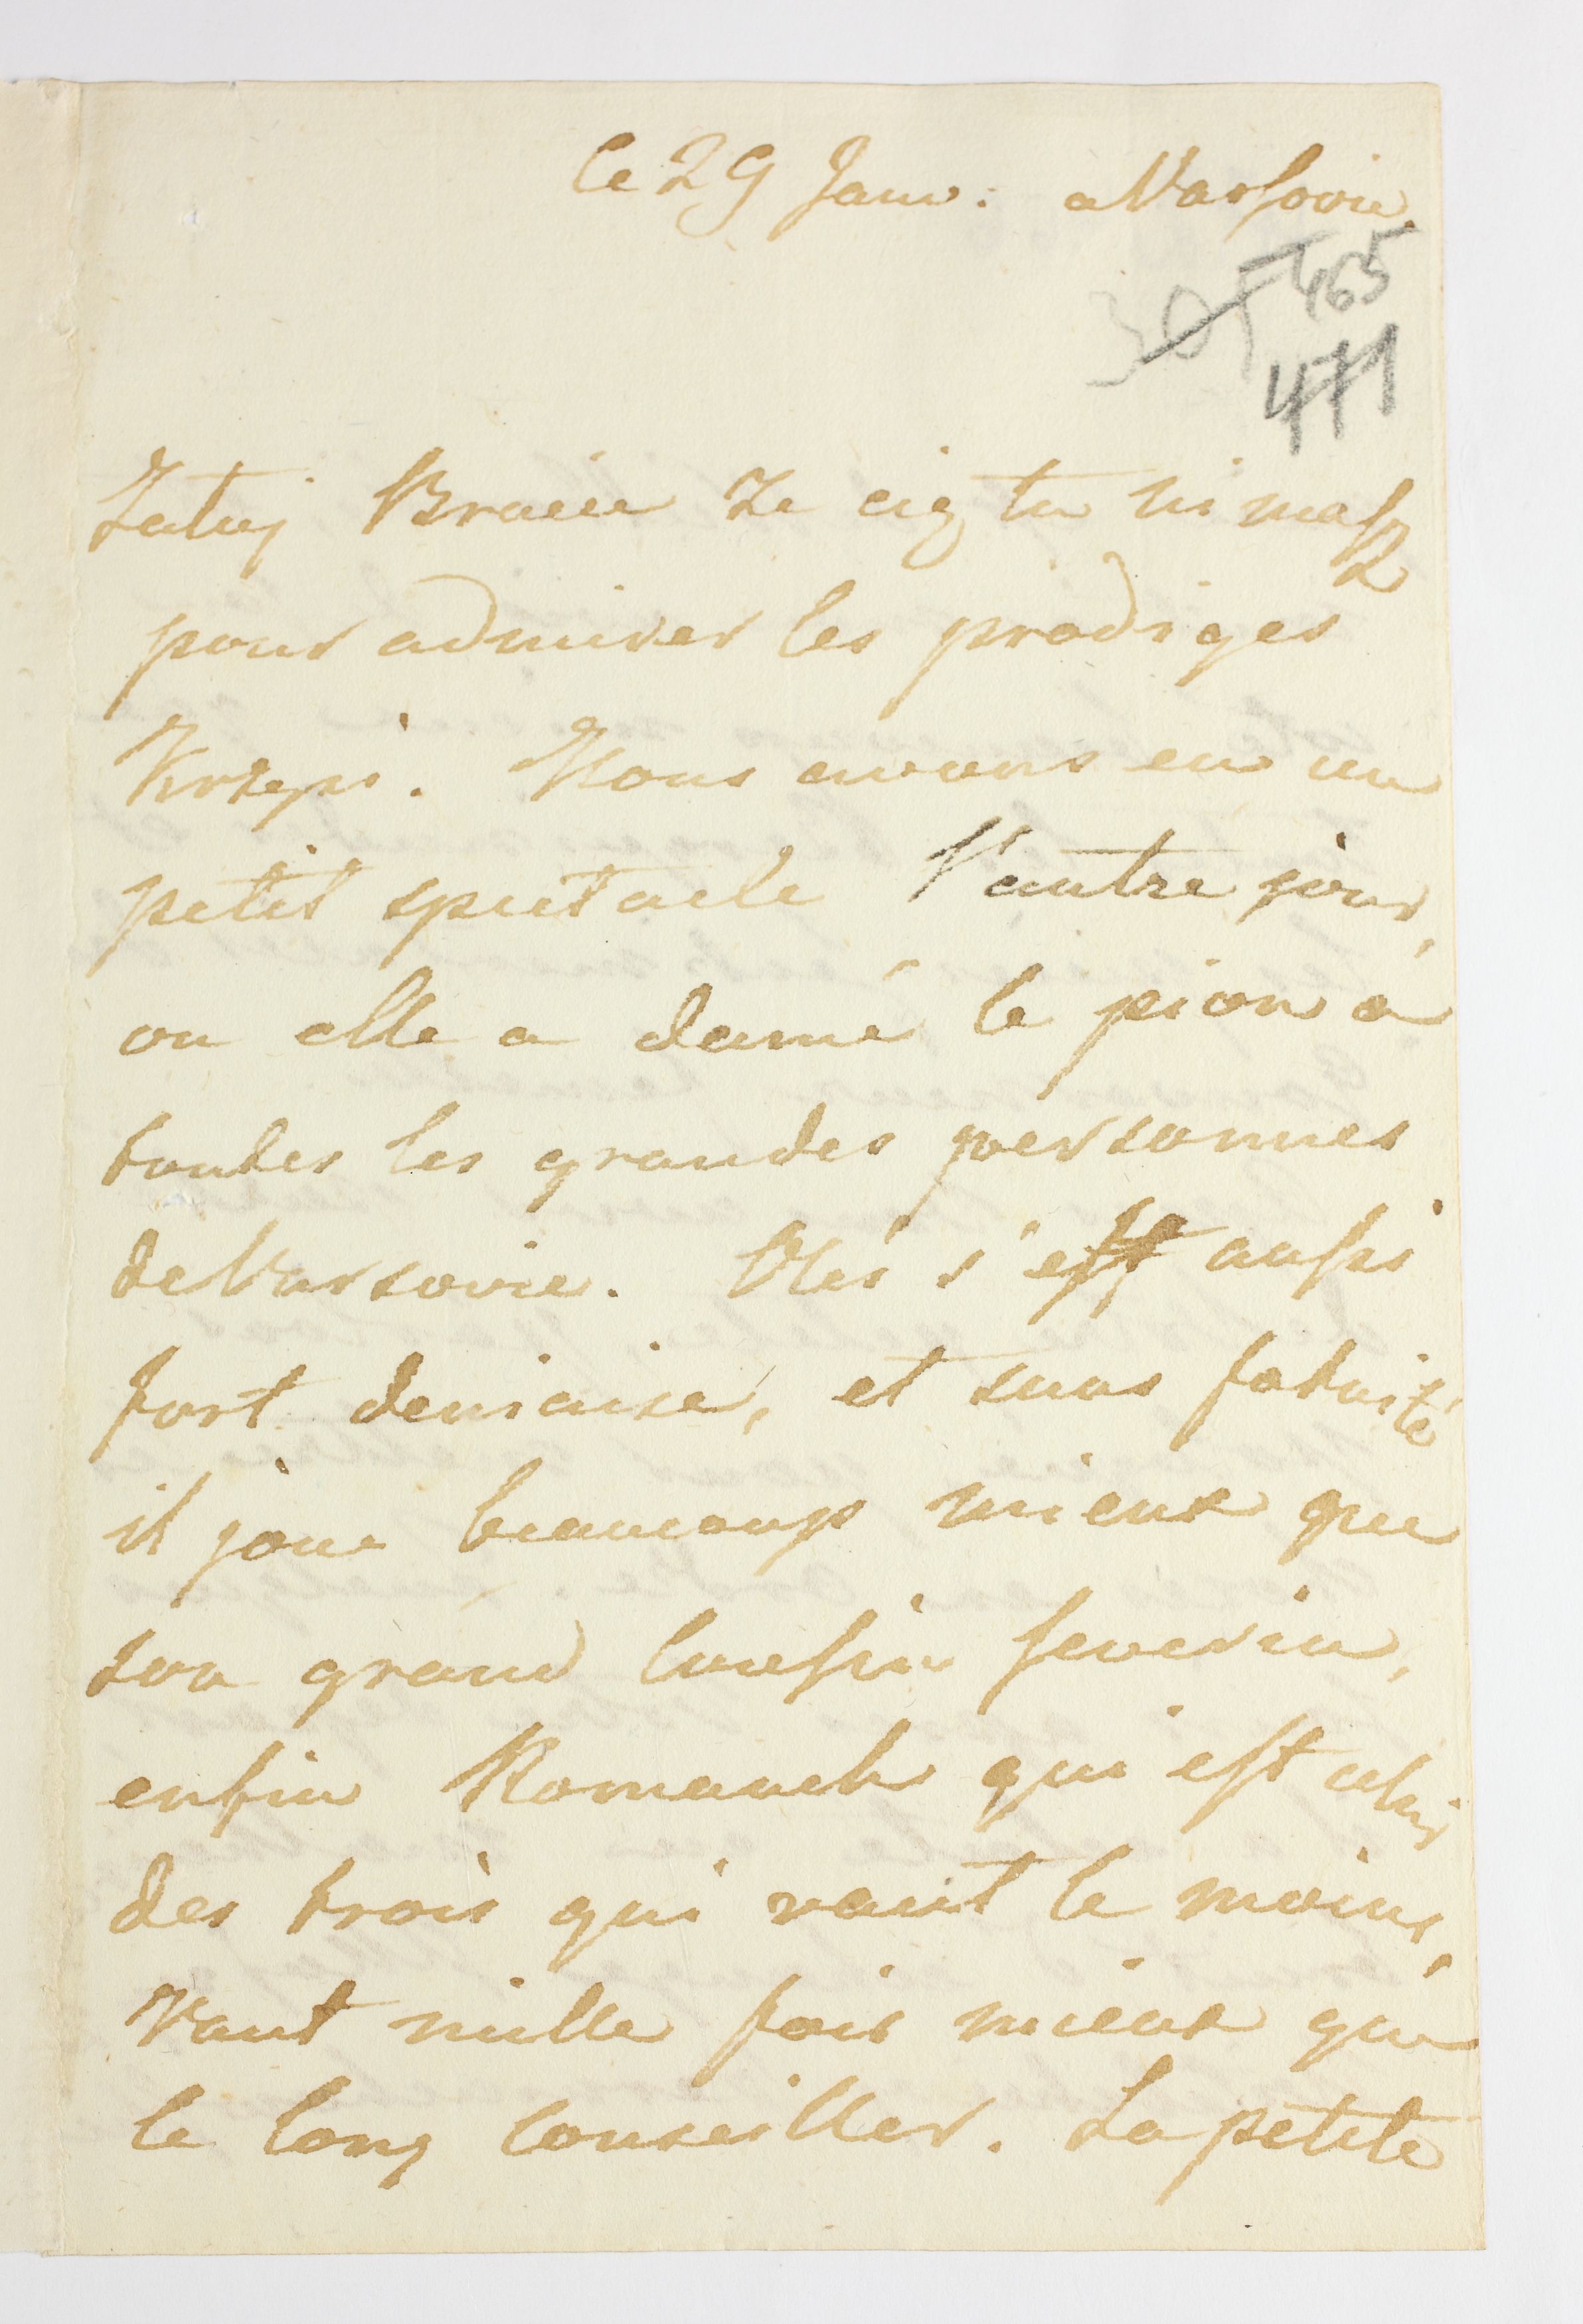 Ce 29 Janv: a Varsovie.
305 465
471
Żałuj Bracie że cię tu ni masz
pour admirer les prodiges
Krzysi. Nous avons eu un
petit spectacle l'autre jour,
ou elle a damé le pion a
toutes les grandes personnes
de Varsovie. Olés s'est aussi
fort deniaisé, et sans fatuité
il joue beaucoup mieux que
son grand Cousin Severin,
enfin Romanek qui est celui
des trois qui vaut le moins,
vaut mille fois mieux que
le long Conseiller. La petite